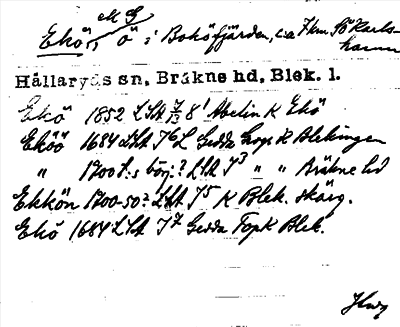 MG
Ekö, ö i Boköfjärden, ca 7 km SÖ Karls-
hamn
Hällaryds sn, Bräkne hd, Blek. l.
Ekö 1852 LSA 8¹ Abelin K Ekö
Eköö 1684 LSA J⁶ L Gedda K Blekingen
" 1700 t:s börj:? LSA J³ " " Bräkne hd
Ekkön 1700-50? LSA J⁵ K Blek. skärg.
Ekö 1684 LSA J⁷ Gedda TopK Blek.